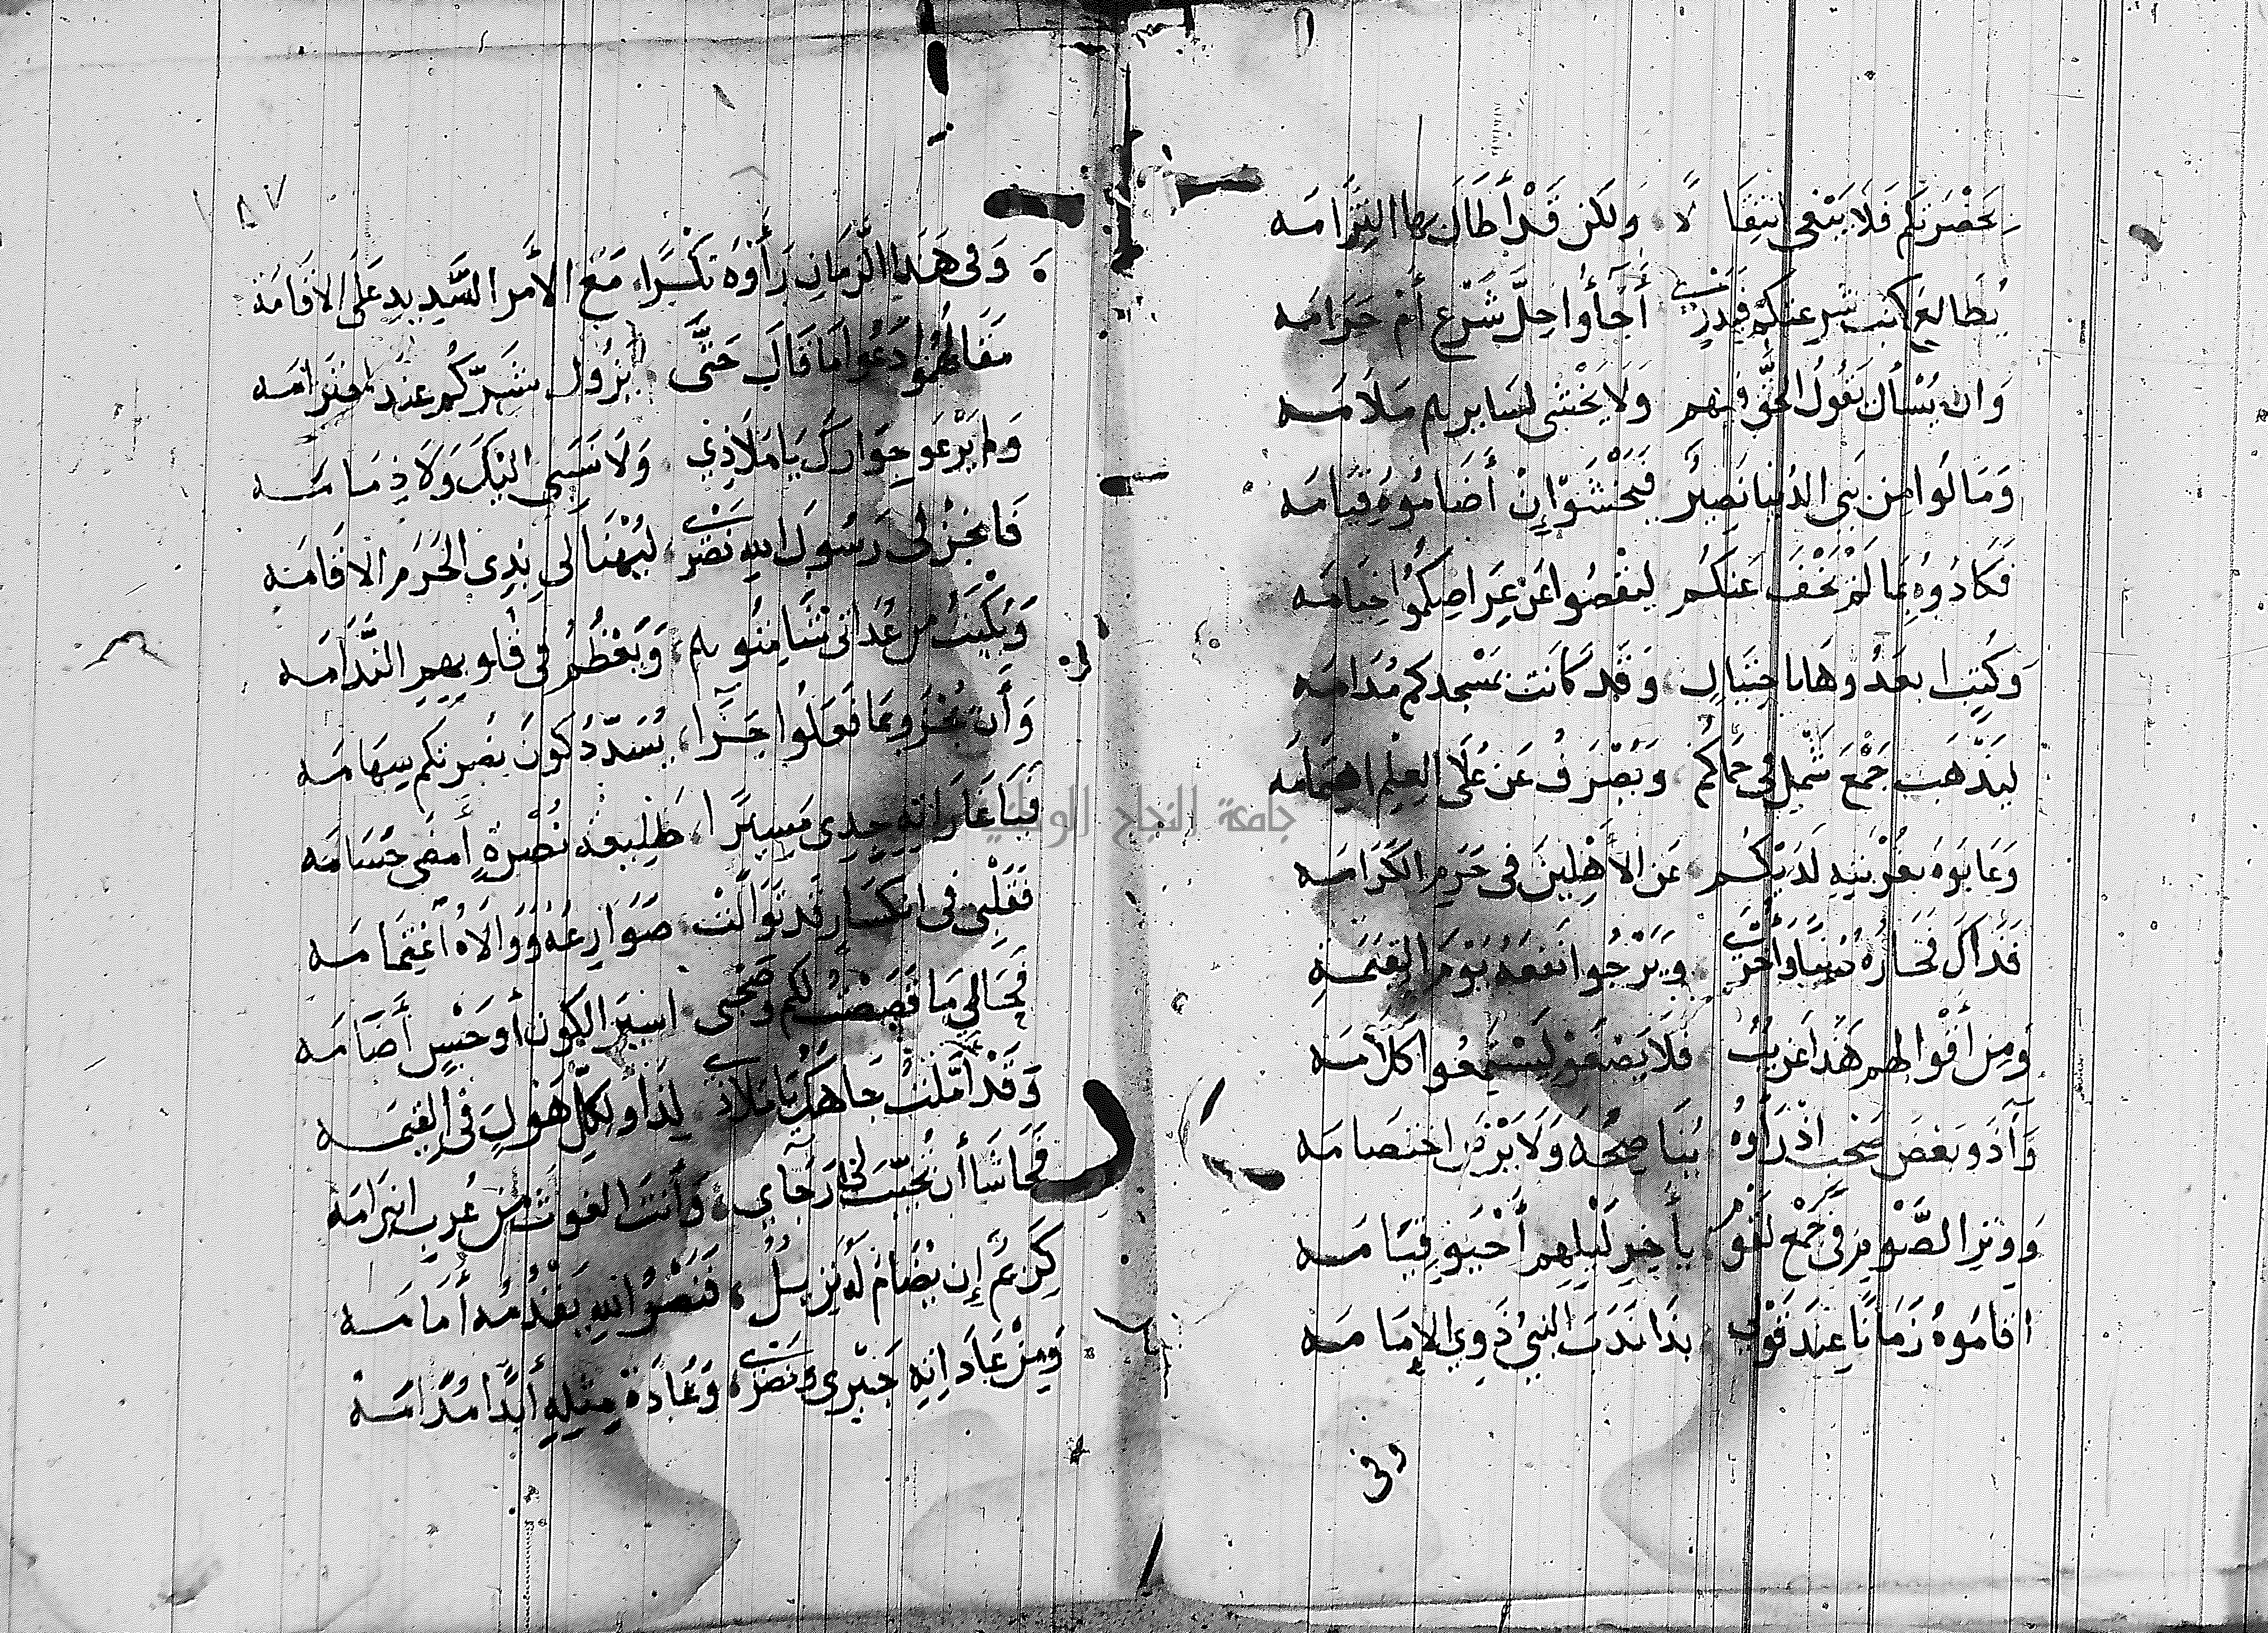 بِحَضْرَتكم فَلَا يَبْغى انتِقَا لًا ولكن قَدْ أَطَالَ بها التِزَامَه
يُطَالِعُ كتب شرعتكم فيدرى أجَآؤا حِلَّ شَرْعٍ أم حَرَامَه
وَان يُسْأل يَقُولُ الحَقَّ فيهم وَلَا يَخْشى لسايرهم مَلَامَه
وَمَا لُوا مِن بَنى الدُنيا نَصِيرٌ فَيَخْشَوا إِنْ أَضَامُوهُ قيامَه
فَكَادُوهُ بِمَا لَمْ يَخْفَ عَنكُم لِيقْصُوا عَنْ عِرَاصِكُمُوا خِيَامَه
وَكُتِبَا بعَدُوهَا باحتيالٍ وَقَد كَانَت بمَسْجدكم مُدَامَه
لِيَذْهَب جَمْعَ شَمْلٍ فى حمَاكُم وَيصْرَف عَن عُلَى العِلْم اهتِمَامَه
وَعَابَوهُ بغُرْبَتِهِ لَدَيْكُم عَن الأَهْلِينَ فى حَرَمِ الكَرَامَه
فَذَاكَ فَخَارُهُ دُنْيَا وَأخرى وَيَرْجُوا نَفعَهُ يَوْمَ القِيَمَةِ
وَمِن أَقْوَالهم هَذَا غَرِيبٌ فَلَا يَصْغَوْ ليَسْتَمِعُوا كَلَامَه
وَآذَو بَعْضَ صَحْب اذ رَأَوْهُ يُنَاصِحُهُ وَلَا يَرْضَى اختصَامَه
وَوِتر الصَّوْمِ فى جَمْعٍ لَغَوْهُ بأخِرِ لَيْلِهِم أَحْيَو قِيَامَه
اقامَوهُ زَمَانًا عِندَ قَوْلى بذَا نَدَبَ النبيُ ذَوي الإمَامَه
وفى
١٨٧
وَفى هَذَا الزَمَانِ رَأَوْهُ نَكْرًا مَعَ الأَمر السَّديدِ عَلَى الاقَامَة
فَقَالُوا دَعُوا مَا قَالَ حَتَّى يَزُول بشَرِّكُم عِندَ احتَرَامَه
وَلم يَرْعَو جِوَارَكَ يَا مَلَاذِي وَلَا نَسَبى اليْكَ وَلَا ذِمَامَه
فَانجِزْ لى رَسُولَ اللهِ نَصْرًى ليُهْنَا لى بذِى الحَرَم الاقَامَه
وَيُكْبَتُ مَن عُدَانى شَامِتُوهم وَيَعْظُمُ فى قُلوبِهِم النَّدَامَه
وَأَن يُجْزَو بمَا فَعَلُوا جَزَا يُسَدِّدُ كَونَ نصرتكم سِهَامَه
فَيَا غَارَاتِهِ جِدِى مَسِيرًا طَلِيعَة نُصْرَةٍ أَمضى حُسَامَه
فَقَلْبى فى انكسَارٍ قَد تَوَالَتْ صَوَارِعُهُ وَوَالَاهُ اغتِمَامَه
فَحَالى مَا قَصَصْتُ لكم وَصَحْبى اسيرَ الكون أو حَبْسٍ أَضَامَه
وَقَدْ أَمَّلتُ جَاهَكَ يَا مَلَاذى لِذَا وَلكلِّ هَوْلٍ فى القِيَمَه
فَحَاشَا أن تُخَيِّبَ لى رَجَايى وَأَنتَ الغوثُ مَن عُرب انبرامَه
كَرِيمٌ إِن يُضَام لَهُ نَزِيلٌ فَنَصْرُ اللهِ يَقْدُمُهُ أَمَامَه
وَمِنْ عَادَاتِهِ جَبْرى وَنَصْرى وَعَادَةُ مِثلِهِ أَبَدًا مُدَامَهْ
جامعة النجاح الوطنية